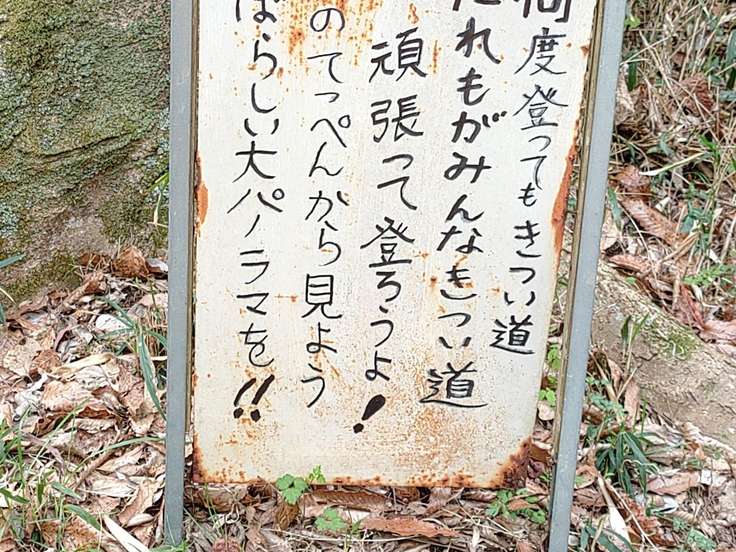 何度登ってもきつい道
だれもがみんなきつい道
頑張って登ろうよ!
のてっぺんから見よう
ばらしい大パノラマを!!